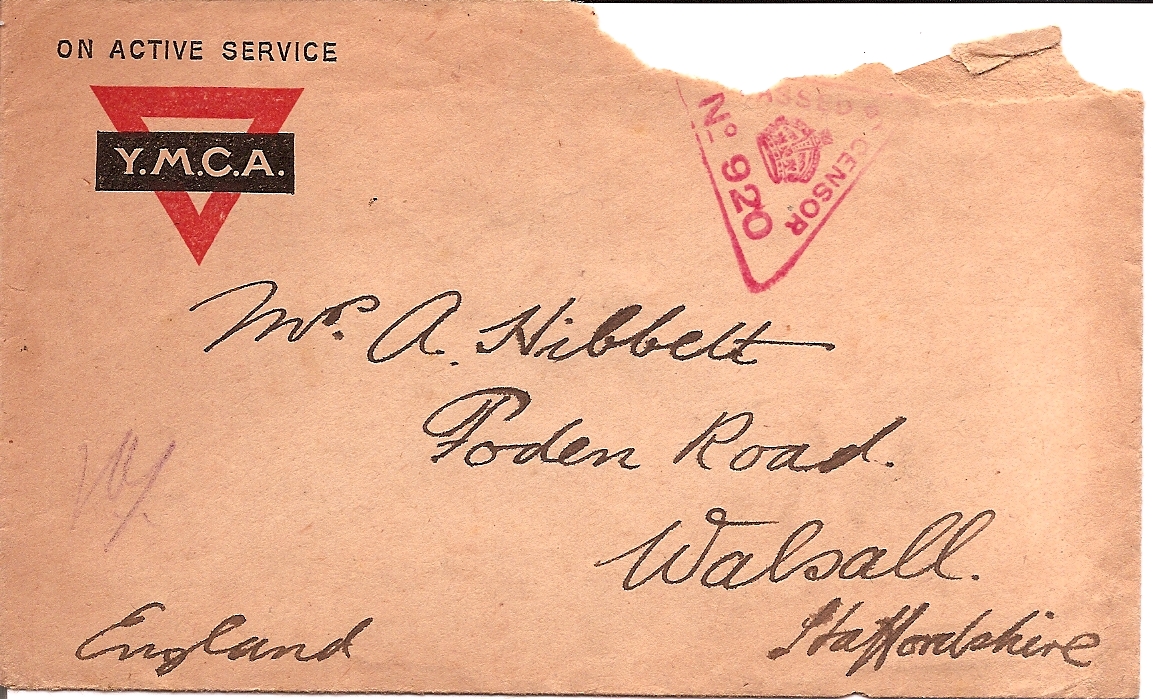 ON ACTIVE SERVICE
Y.M.C.A.
PASSED BY CENSOR
No 920
Mrs. A. Hibbett
Foden Road.
Walsall.
Staffordshire
England